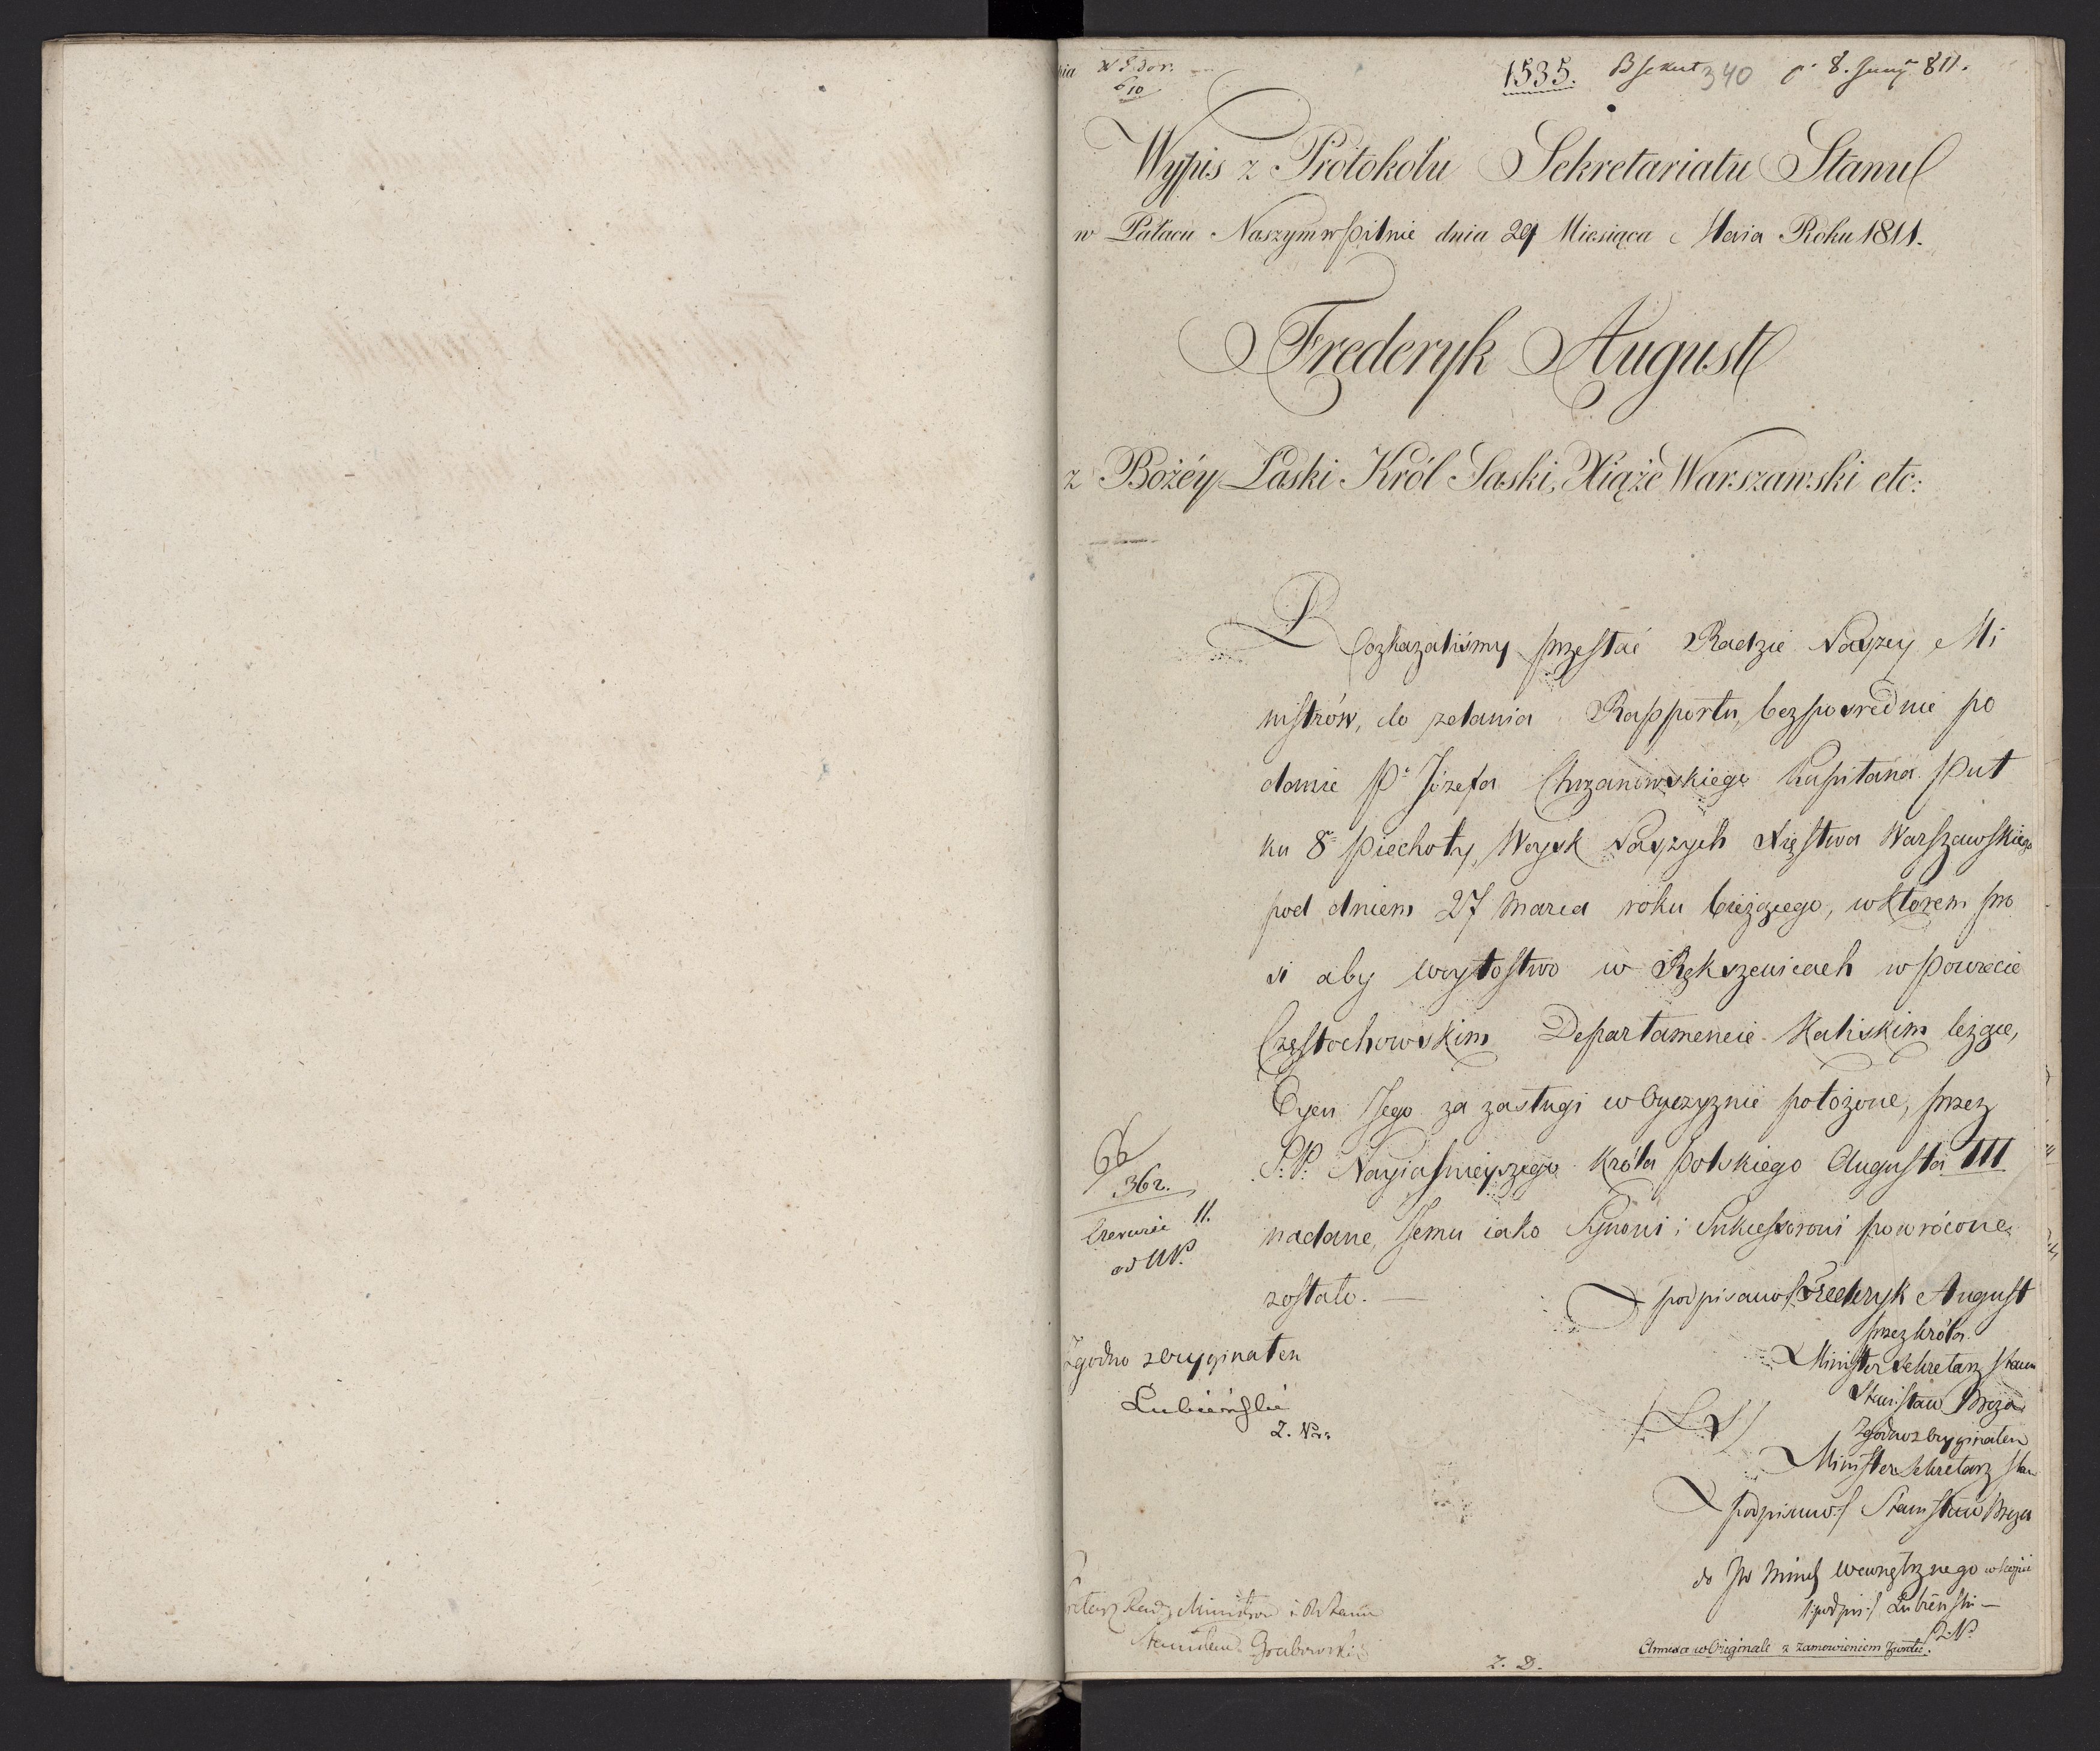 1535. 340 8. Juny 811.
Wypis z Protokołu Sekretariatu Stanu
w Pałacu Naszym w Pilnie dnia 29 Miesiąca Maia Roku 1811.
Frederyk August
z Bożéy Łaski Król Saski, Xiąże Warszawski etc:
Rozkazaliśmy przesłać Radzie Naszey Mi
nistrów, do zdania Rapportu, bezpośrednie po
danie P. Józefa Chrzanowskiego Kapitana Puł
ku 8º Piechoty, Woysk Naszych Xięstwa Warszawskiego
pod dniem 27 Marca roku bieżącego, w którem pro
si aby woytostwo w Rększewicach w Powiecie
Częstochowskim Departamencie Kaliskim leżące,
Oycu Jego za zasługi w Oyczyznie położone, przez
S. P. Nayiaśnieyszego Króla Polskiego Augusta III
nadane, Jemu iako Synowi i Sukcessorowi powrócone
zostało. —
66
362.
Czerwca 11.
podpisano Frederyk August
przez Króla
Minister Sekretarz Stanu
Stanisław Breza
Zgodno z Oryginałem
Łubieński
(L S)
Zgodno z Oryginałem
Minister Sekretarz Stanu
podpisano Stanisław Breza
do JW Minis Wewnętrznego w kopii
podpis. Łubieński —
Radz Ministrow i Stanu
Stanisław Grabowski
Z. D.
w Originale z zamowieniem